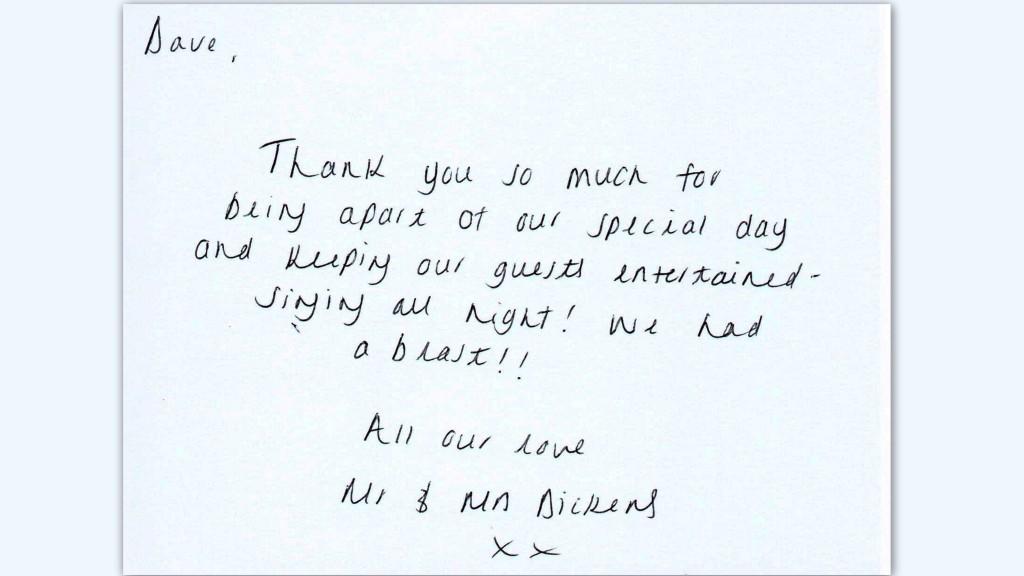 Dave,
Thank you so much for
being apart of our special day
and keeping our guests entertained-
singing all night! We had
a blast!!
All our love
Mr & Mrs Dickens
xx